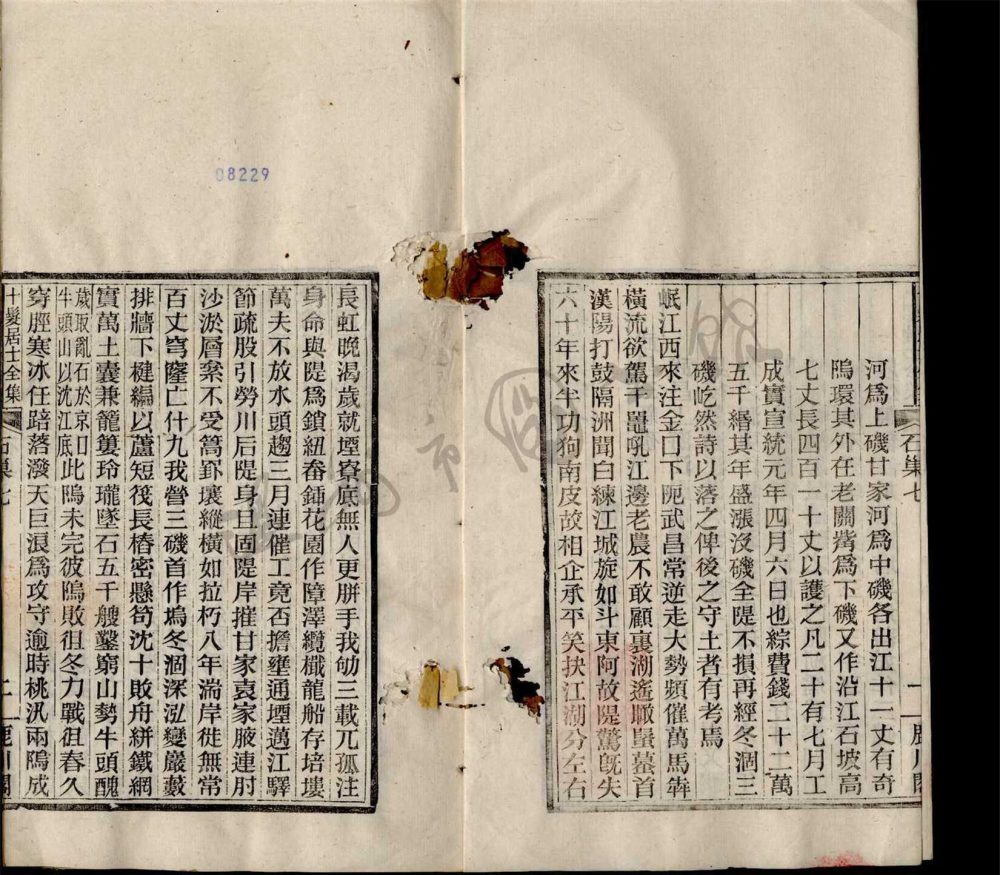 河爲上磯甘家河爲中磯各出江十一丈有奇
隖環其外在老關觜爲下磯又作沿江石坡高
七丈長四百一十丈以護之凡二十有七月工
成實宣統元年四月六日也綜費錢二十二萬
五千緡其年盛漲沒磯全隄不損再經冬涸三
磯屹然詩以落之俾後之守土者有考焉
岷江西來注金口下阨武昌常逆走大勢頻催萬馬犇
橫流欲駕千鼉吼江邊老農不敢顧裏湖遙瞰蜃蟇首
漢陽打鼓隔洲聞白練江城旋如斗東阿故隄驚旣失
六十年來半功狗南皮故相企承平笑抉江湖分左右
長虹晚渴歲就堙寮底無人更胼手我劬三載兀孤注
身命與隄爲鎖紐畚鍤花園作障澤纜檥龍船存培塿
萬夫不放水頭趨三月連催工竟否擔壅通堙邁江驛
節疏股引勞川后隄身且固隄岸摧甘家袁家腋連肘
沙淤層案不受篙郛壤縱橫如拉朽八年湍岸徙無常
百丈穹窿亡什九我營三磯首作塢冬涸深泓變巖藪
排牆下楗編以蘆短筏長樁密懸笱沈十敗舟絣鐵網
實萬土囊兼籠簍玲瓏墜石五千艘鑿窮山勢牛頭醜
歲取亂石於京口
牛頭山以沈江底
此隖未完彼隖敗徂冬力戰徂春久
穿脛寒冰任踣落潑天巨浪爲攻守逾時桃汛兩隖成
十髮居士全集
石巢七
二
鹿川閣
石巢七
一
鹿川閣
08229